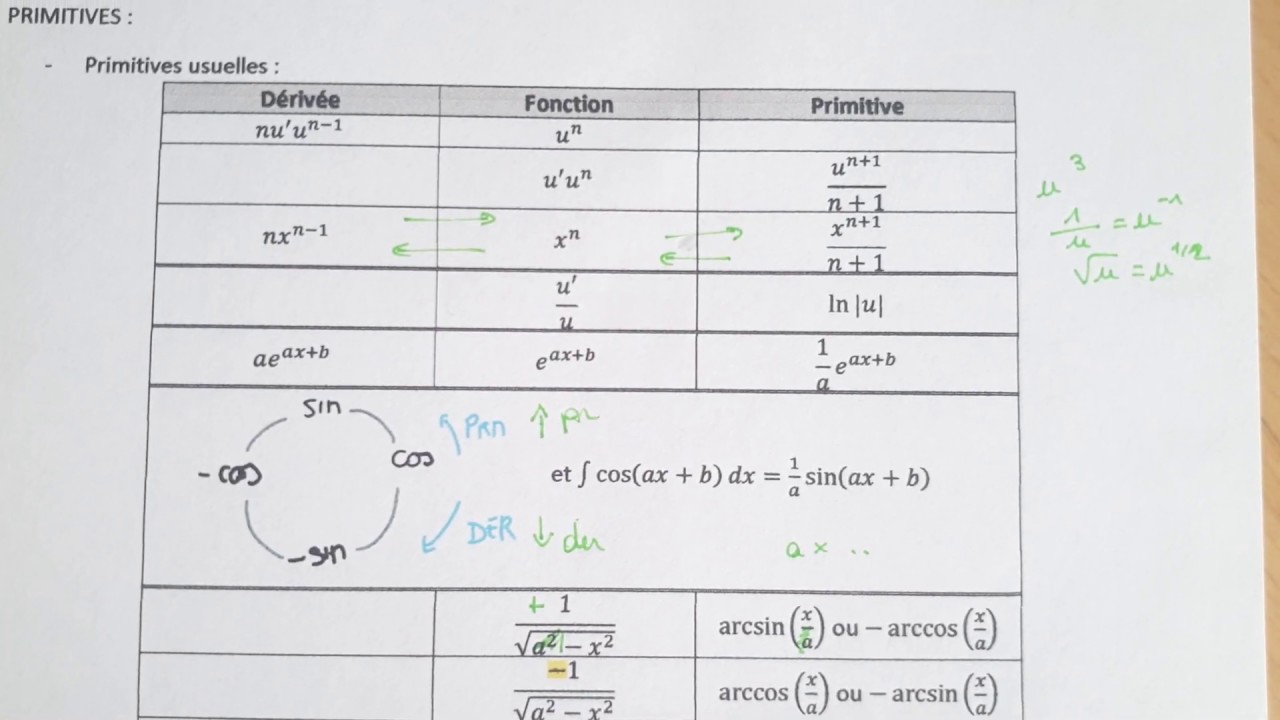 PRIMITIVES :
- Primitives usuelles :
Dérivée Fonction Primitive
nu'u^{n-1} u^n
u'u^n \frac{u^{n+1}}{n+1}
nx^{n-1} x^n \frac{x^{n+1}}{n+1}
\frac{u'}{u} ln |u|
ae^{ax+b} e^{ax+b} \frac{1}{a}e^{ax+b}
u^3
\frac{1}{u} = u^{-1}
√u = u^{1/2}
sin
- cos
cos
-sin
↖ PRM ↑ pr
et ∫ cos(ax + b) dx = \frac{1}{a} sin(ax + b)
↙ DER ↓ der
a × ..
\frac{+ 1}{\sqrt{a^2 - x^2}} arcsin (\frac{x}{a}) ou - arccos (\frac{x}{a})
\frac{-1}{\sqrt{a^2 - x^2}} arccos (\frac{x}{a}) ou - arcsin (\frac{x}{a})